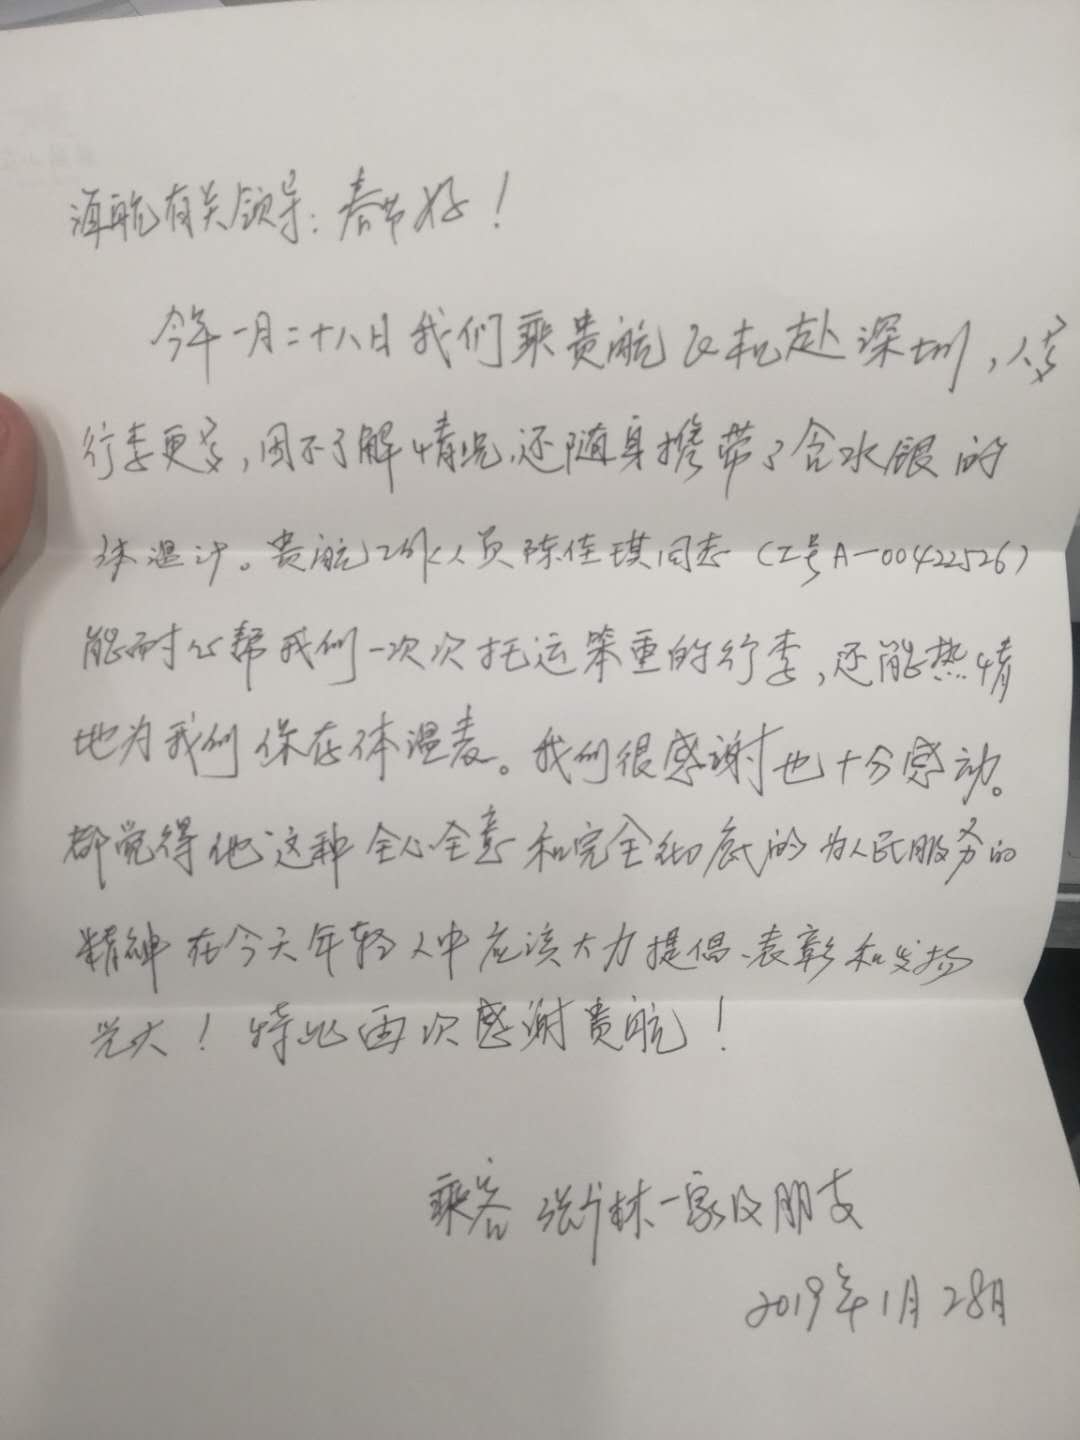 海航有关领导：春节好！
今年一月二十八日我们乘贵航飞机赴深圳，人多
行李更多，因不了解情况，还随身携带了含水银的
体温计。贵航工作人员陈佳琪同志（工号A-00422526）
能耐心帮我们一次次托运笨重的行李，还能热情
地为我们保存体温表。我们很感谢也十分感动。
都觉得他这种全心全意和完全彻底的为人民服务的
精神在今天年轻人中应该大力提倡、表彰和发扬
光大！特此再次感谢贵航！
乘客 张 林一家及朋友
2019年1月28日